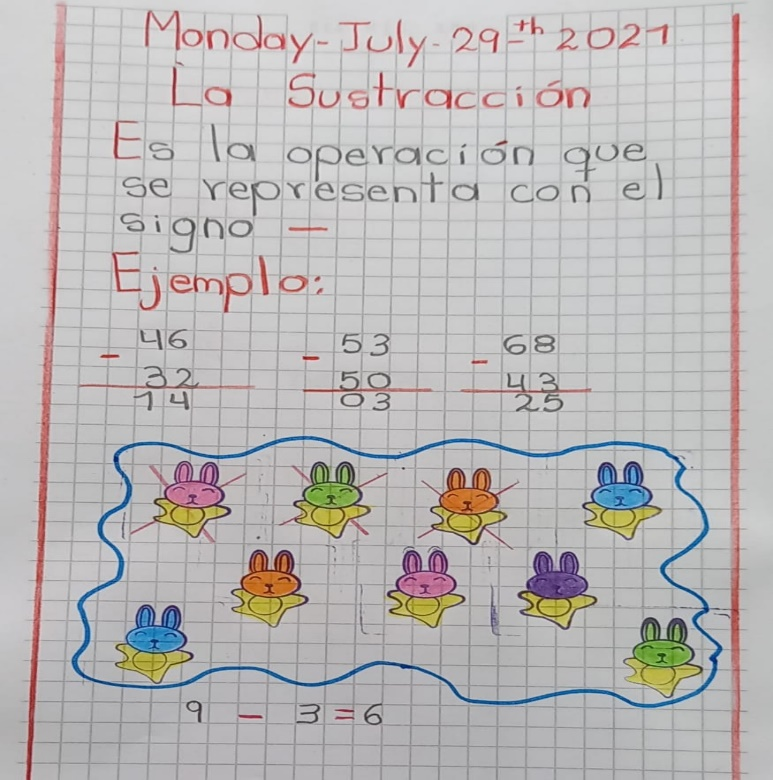 Monday-July-29th 2021
La Sustracción
Es la operación que
se representa con el
signo —
Ejemplo:
46 53 68
- - -
32 50 43
14 03 25
9 - 3 = 6